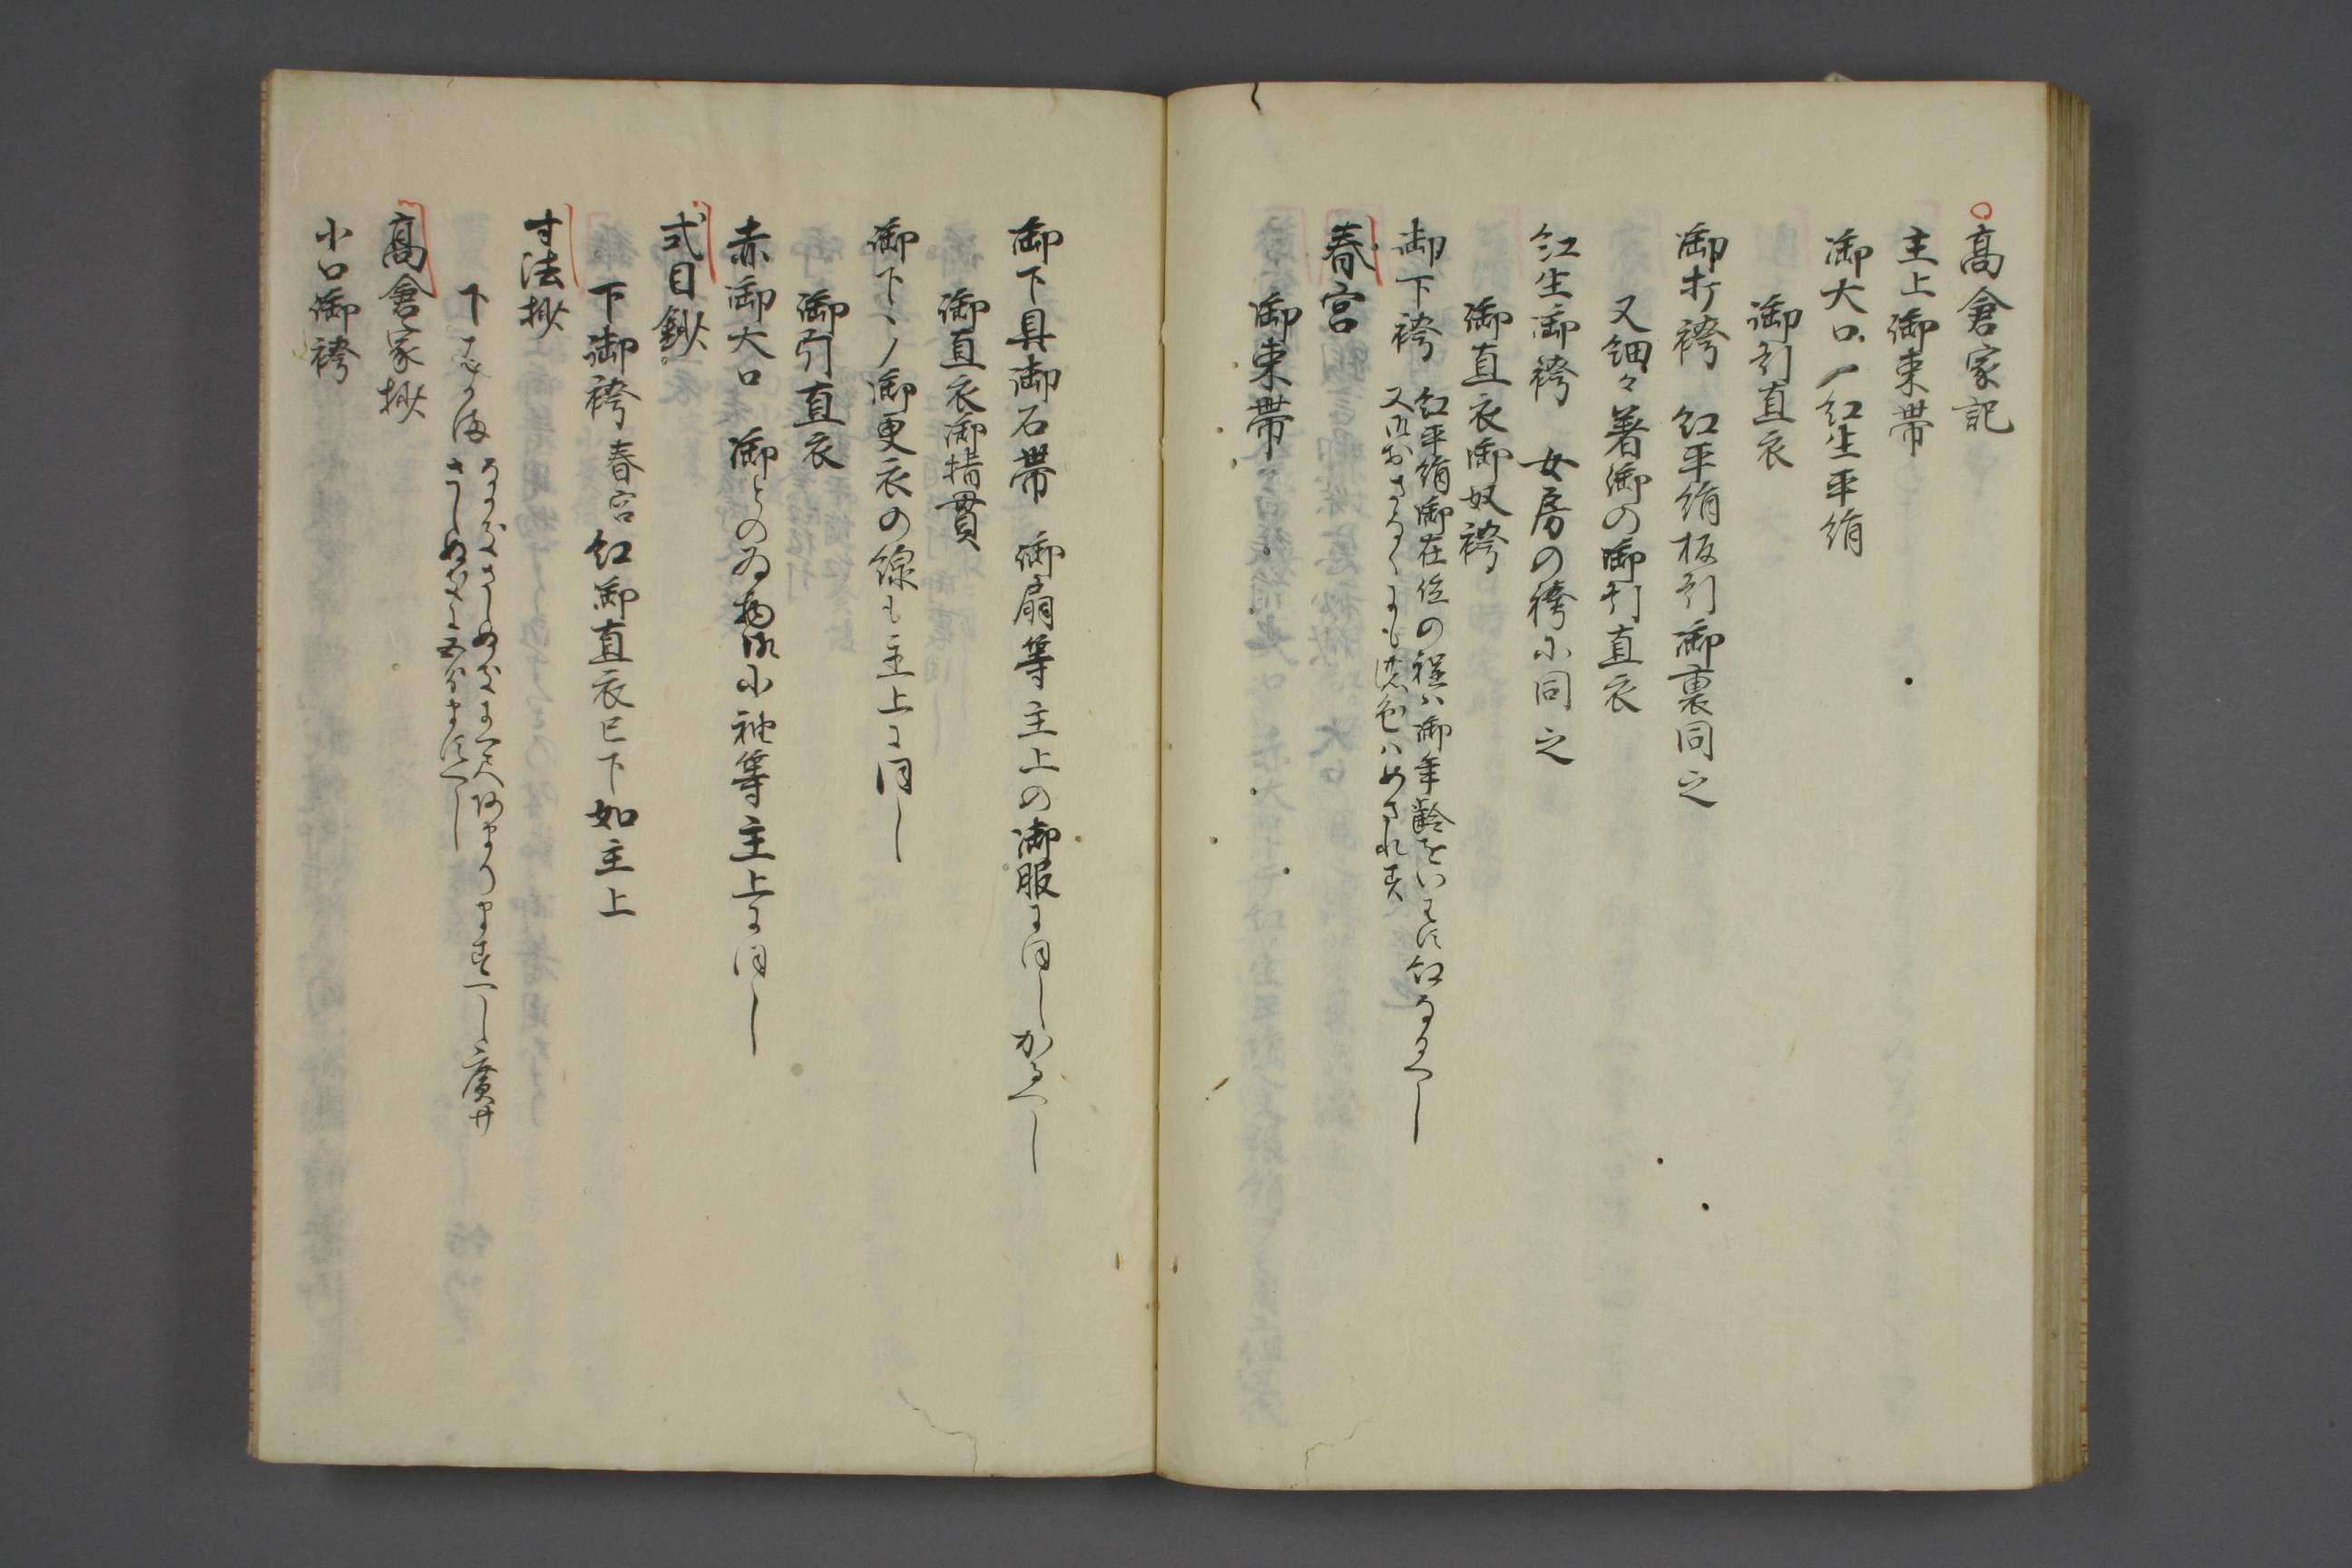 高倉家記
主上御束帯
御大口 紅生平絹
御引直衣
御打袴 紅平絹板引御裏同之
又細々著御の御引直衣
紅生御袴 女房の袴に同之
御直衣御奴袴
御下袴 紅平絹御在位の程ハ御年齢をいはす紅なるへし
春宮
御束帯
御下具御石帯 御扇等主上の御服に同しかるへし
御直衣御指貫
御下ヽノ御更衣の線も主上に同し
御引直衣
赤御大口 御とのゐ物御小袖等主上に同し
式目鈔
下御袴 春宮紅御直衣已下如主上
寸法抄
下はかま
高倉家抄
小口御袴